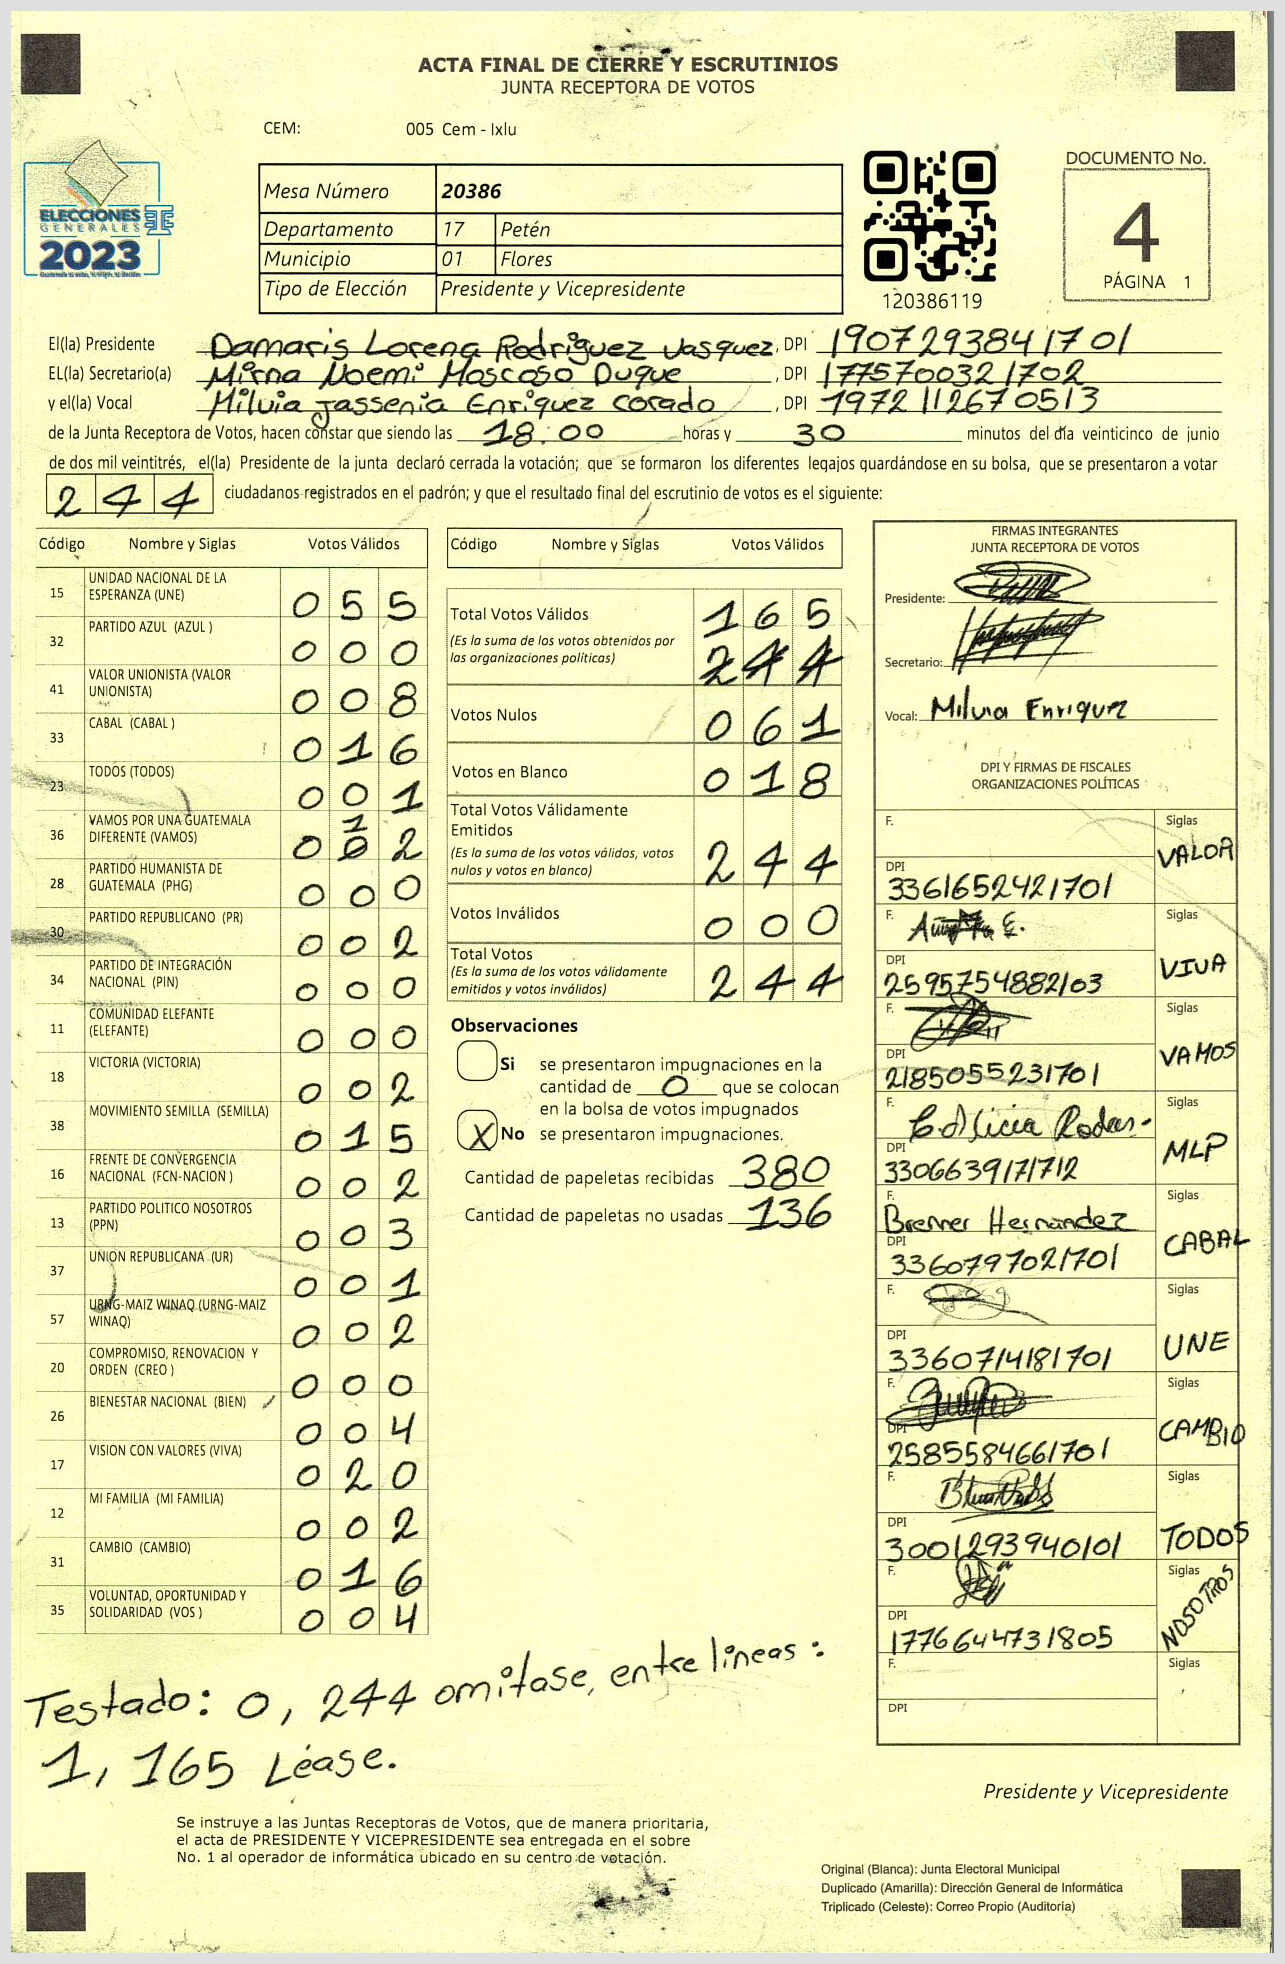 ACTA FINAL DE CIERRE Y ESCRUTINIOS
JUNTA RECEPTORA DE VOTOS
CEM: 005 Cem - Ixlu
ELECCIONES
GENERALES
2023
Mesa Número 20386
Departamento 17 Petén
Municipio 01 Flores
Tipo de Elección Presidente y Vicepresidente
120386119
DOCUMENTO No.
4
PÁGINA 1
El(la) Presidente Damaris Lorena Rodriguez Vasquez, DPI 1907293841701
EL(la) Secretario(a) Mirna Noemi Moscoso Duque, DPI 1775700321702
y el(la) Vocal Milvia Jassenia Enriquez Corado, DPI 1972112670513
de la Junta Receptora de Votos, hacen constar que siendo las 18:00 horas y 30 minutos del día veinticinco de junio
de dos mil veintitrés, el(la) Presidente de la junta declaró cerrada la votación; que se formaron los diferentes legajos guardándose en su bolsa, que se presentaron a votar
244 ciudadanos registrados en el padrón; y que el resultado final del escrutinio de votos es el siguiente:
Código Nombre y Siglas Votos Válidos
15 UNIDAD NACIONAL DE LA ESPERANZA (UNE) 055
32 PARTIDO AZUL (AZUL ) 000
41 VALOR UNIONISTA (VALOR UNIONISTA) 008
33 CABAL (CABAL ) 016
23 TODOS (TODOS) 001
36 VAMOS POR UNA GUATEMALA DIFERENTE (VAMOS) 012
28 PARTIDO HUMANISTA DE GUATEMALA (PHG) 000
30 PARTIDO REPUBLICANO (PR) 002
34 PARTIDO DE INTEGRACIÓN NACIONAL (PIN) 000
11 COMUNIDAD ELEFANTE (ELEFANTE) 000
18 VICTORIA (VICTORIA) 002
38 MOVIMIENTO SEMILLA (SEMILLA) 015
16 FRENTE DE CONVERGENCIA NACIONAL (FCN-NACION ) 002
13 PARTIDO POLITICO NOSOTROS (PPN) 003
37 UNION REPUBLICANA (UR) 001
57 URNG-MAIZ WINAQ (URNG-MAIZ WINAQ) 002
20 COMPROMISO, RENOVACION Y ORDEN (CREO ) 000
26 BIENESTAR NACIONAL (BIEN) 004
17 VISION CON VALORES (VIVA) 020
12 MI FAMILIA (MI FAMILIA) 002
31 CAMBIO (CAMBIO) 016
35 VOLUNTAD, OPORTUNIDAD Y SOLIDARIDAD (VOS ) 004
Código Nombre y Siglas Votos Válidos
Total Votos Válidos 165
(Es la suma de los votos obtenidos por las organizaciones políticas) 244
Votos Nulos 061
Votos en Blanco 018
Total Votos Válidamente Emitidos
(Es la suma de los votos válidos, votos nulos y votos en blanco) 244
Votos Inválidos 000
Total Votos
(Es la suma de los votos válidamente emitidos y votos inválidos) 244
Observaciones
Si se presentaron impugnaciones en la
cantidad de 0 que se colocan
en la bolsa de votos impugnados
X No se presentaron impugnaciones.
Cantidad de papeletas recibidas 380
Cantidad de papeletas no usadas 136
FIRMAS INTEGRANTES
JUNTA RECEPTORA DE VOTOS
Presidente:
Secretario:
Vocal: Milvia Enriquez
DPI Y FIRMAS DE FISCALES
ORGANIZACIONES POLÍTICAS
F. Siglas
DPI 3361652421701 VALOR
F. Siglas
DPI 2595754882103 VIVA
F. Siglas
DPI 2185055231701 VAMOS
F. Alicia Rodas Siglas
DPI 3306639171712 MLP
F. Brenner Hernández Siglas
DPI 3360797021701 CABAL
F. Siglas
DPI 3360714181701 UNE
F. Siglas
DPI 2585584661701 CAMBIO
F. Siglas
DPI 3001293940101 TODOS
F. Siglas
DPI 1776644731805 NOSOTROS
F. Siglas
DPI
Testado: 0, 244 omítase, entre lineas:
1, 165 Léase.
Presidente y Vicepresidente
Se instruye a las Juntas Receptoras de Votos, que de manera prioritaria,
el acta de PRESIDENTE Y VICEPRESIDENTE sea entregada en el sobre
No. 1 al operador de informática ubicado en su centro de votación.
Original (Blanca): Junta Electoral Municipal
Duplicado (Amarilla): Dirección General de Informática
Triplicado (Celeste): Correo Propio (Auditoría)